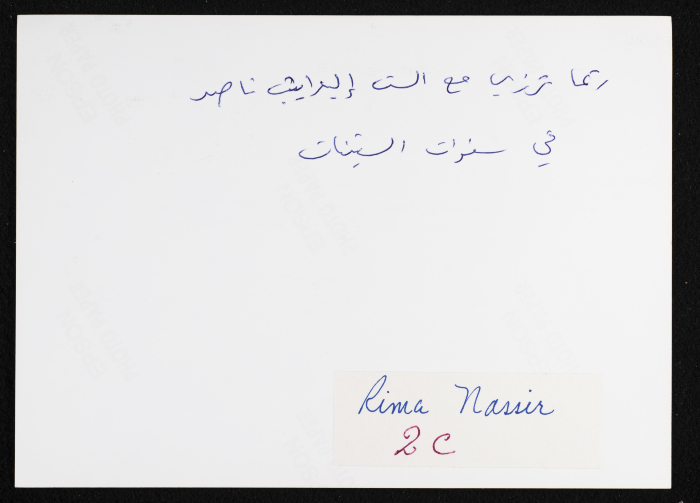 ريما ترزي مع الست إليزابيث ناصر
في سنوات الستينات
Rima Nassir
2C